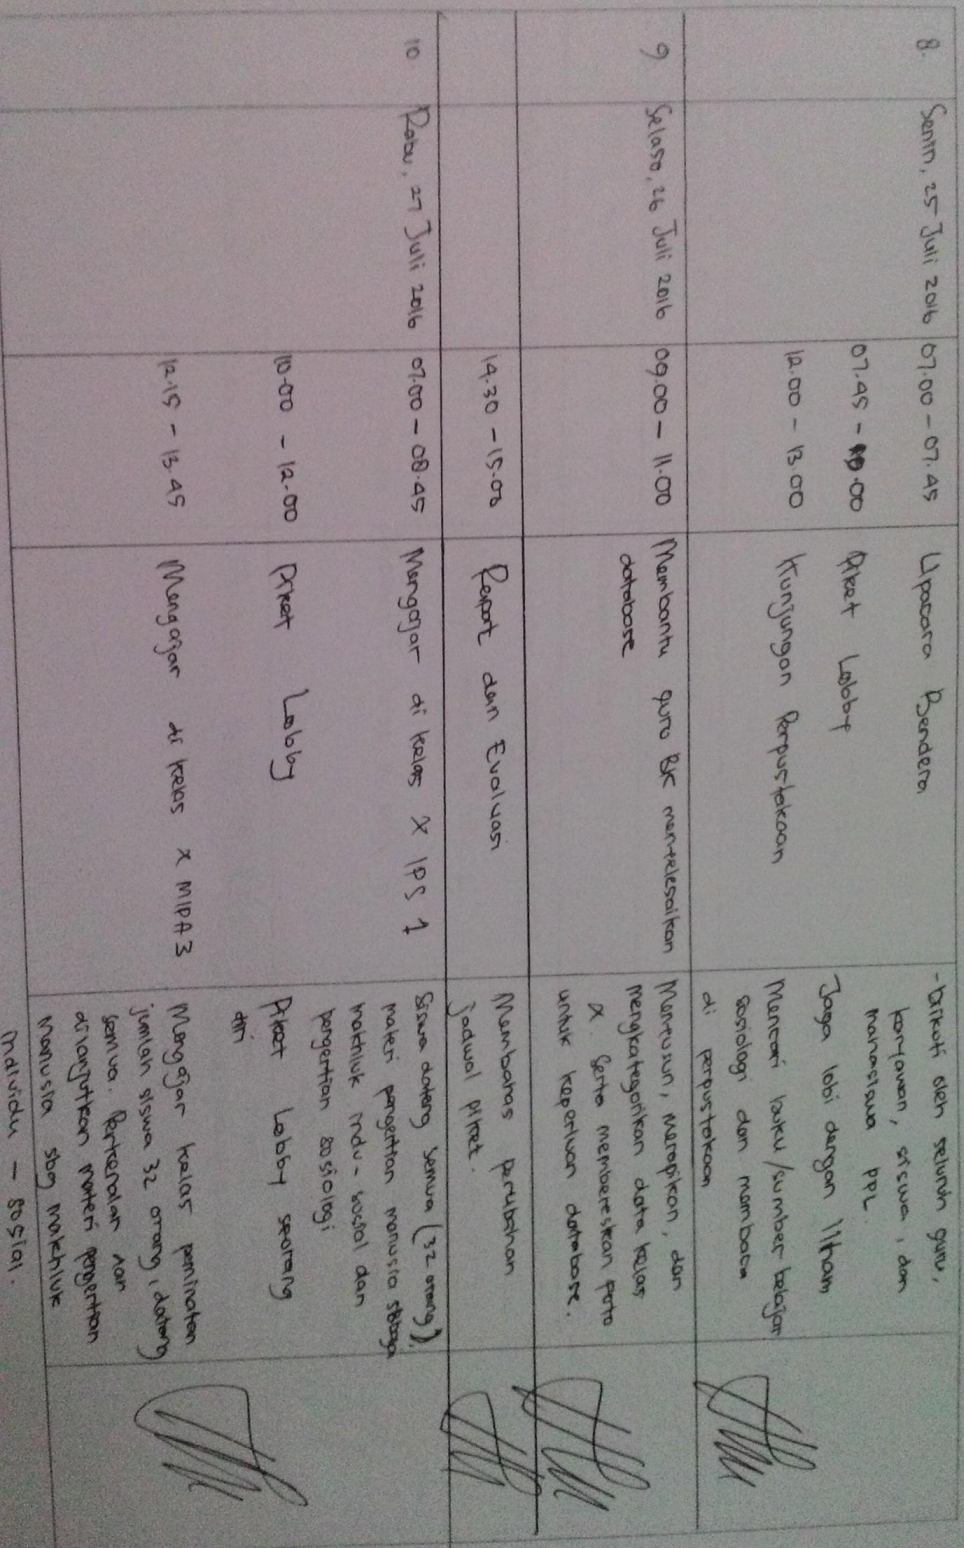 8. Senin, 25 Juli 2016 07.00 - 07.45 Upacara Bendera - Diikuti oleh seluruh guru,
karyawan, siswa, dan
mahasiswa PPL.
07.45 - 10.00 Piket Lobby Jaga lobi dengan Ilham
12.00 - 13.00 Kunjungan Perpustakaan Mencari buku/sumber belajar
sosiologi dan membaca
di perpustakaan
9 Selasa, 26 Juli 2016 09.00 - 11.00 Membantu guru BK menyelesaikan Menyusun, merapikan, dan
database mengkategorikan data kelas
X. Serta membereskan foto
untuk keperluan database.
14.30 - 15.00 Rapat dan Evaluasi Membahas perubahan
jadwal piket.
10 Rabu, 27 Juli 2016 07.00 - 08.45 Mengajar di kelas X IPS 1 Siswa datang semua (32 orang),
materi pengertian manusia sbaga
makhluk indv - sosial dan
pengertian sosiologi
10.00 - 12.00 Piket Lobby Piket Lobby seorang
diri
12.15 - 13.45 Mengajar di kelas X MIPA 3 Mengajar kelas peminatan
jumlah siswa 32 orang, datang
semua. Perkenalan dan
dilanjutkan materi pengertian
manusia sbg makhluk
individu - sosial.